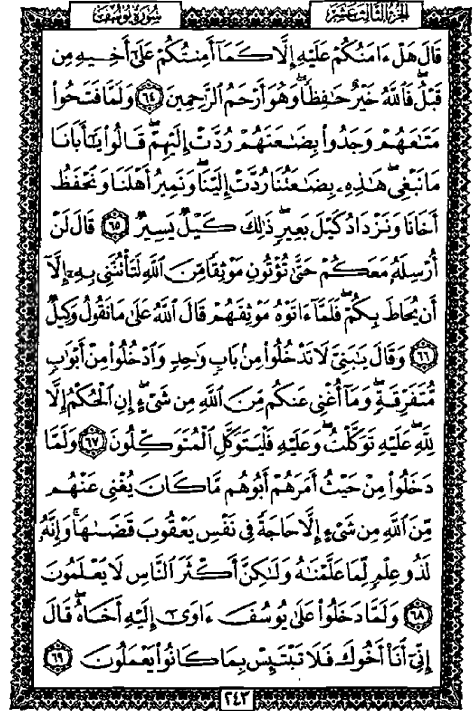 سُورَةُ يُوسُفَ الجزء الثالث عشر
قَالَ هَلْ ءَامَنُكُمْ عَلَيْهِ إِلَّا كَمَآ أَمِنتُكُمْ عَلَىٰٓ أَخِيهِ مِن
قَبْلُ فَٱللَّهُ خَيْرٌ حَـٰفِظًا وَهُوَ أَرْحَمُ ٱلرَّٰحِمِينَ ٦٤ وَلَمَّا فَتَحُوا۟
مَتَـٰعَهُمْ وَجَدُوا۟ بِضَـٰعَتَهُمْ رُدَّتْ إِلَيْهِمْ قَالُوا۟ يَـٰٓأَبَانَا
مَا نَبْغِى هَـٰذِهِۦ بِضَـٰعَتُنَا رُدَّتْ إِلَيْنَا وَنَمِيرُ أَهْلَنَا وَنَحْفَظُ
أَخَانَا وَنَزْدَادُ كَيْلَ بَعِيرٍ ذَٰلِكَ كَيْلٌ يَسِيرٌ ٦٥ قَالَ لَنْ
أُرْسِلَهُۥ مَعَكُمْ حَتَّىٰ تُؤْتُونِ مَوْثِقًا مِّنَ ٱللَّهِ لَتَأْتُنَّنِى بِهِۦٓ إِلَّآ
أَن يُحَاطَ بِكُمْ فَلَمَّآ ءَاتَوْهُ مَوْثِقَهُمْ قَالَ ٱللَّهُ عَلَىٰ مَا نَقُولُ وَكِيلٌ
٦٦ وَقَالَ يَـٰبَنِىَّ لَا تَدْخُلُوا۟ مِنۢ بَابٍ وَٰحِدٍ وَٱدْخُلُوا۟ مِنْ أَبْوَٰبٍ
مُّتَفَرِّقَةٍ وَمَآ أُغْنِى عَنكُم مِّنَ ٱللَّهِ مِن شَىْءٍ إِنِ ٱلْحُكْمُ إِلَّا
لِلَّهِ عَلَيْهِ تَوَكَّلْتُ وَعَلَيْهِ فَلْيَتَوَكَّلِ ٱلْمُتَوَكِّلُونَ ٦٧ وَلَمَّا
دَخَلُوا۟ مِنْ حَيْثُ أَمَرَهُمْ أَبُوهُم مَّا كَانَ يُغْنِى عَنْهُم
مِّنَ ٱللَّهِ مِن شَىْءٍ إِلَّا حَاجَةً فِى نَفْسِ يَعْقُوبَ قَضَىٰهَا وَإِنَّهُۥ
لَذُو عِلْمٍ لِّمَا عَلَّمْنَـٰهُ وَلَـٰكِنَّ أَكْثَرَ ٱلنَّاسِ لَا يَعْلَمُونَ
٦٨ وَلَمَّا دَخَلُوا۟ عَلَىٰ يُوسُفَ ءَاوَىٰٓ إِلَيْهِ أَخَاهُ قَالَ
إِنِّىٓ أَنَا۠ أَخُوكَ فَلَا تَبْتَئِسْ بِمَا كَانُوا۟ يَعْمَلُونَ ٦٩
٢٤٣